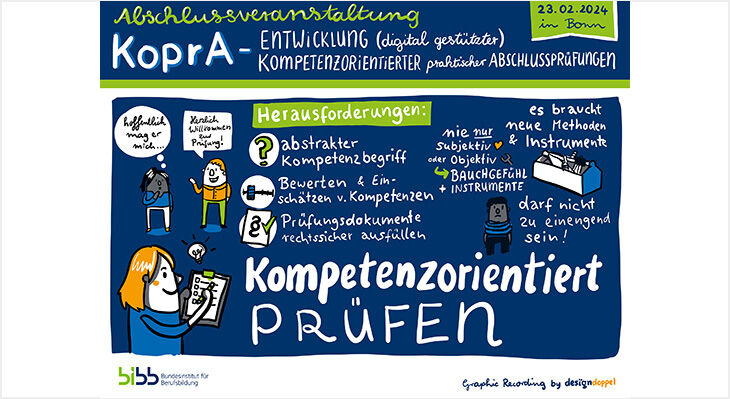 Abschlussveranstaltung
23.02.2024
in Bonn
KoprA - ENTWICKLUNG (digital gestützter)
KOMPETENZORIENTIERTER praktischer ABSCHLUSSPRÜFUNGEN
hoffentlich
mag er
mich...
Herzlich
Willkommen
zur
Prüfung!
Herausforderungen:
?
abstrakter
Kompetenzbegriff
Bewerten & Ein-
schätzen v. Kompetenzen
§
Prüfungsdokumente
rechtssicher ausfüllen
nie nur
Subjektiv
oder Objektiv
BAUCHGEFÜHL
+ INSTRUMENTE
es braucht
neue Methoden
& Instrumente
darf nicht
zu einengend
sein!
Kompetenzorientiert
PRÜFEN
bibb Bundesinstitut für
Berufsbildung
Graphic Recording by designdoppel